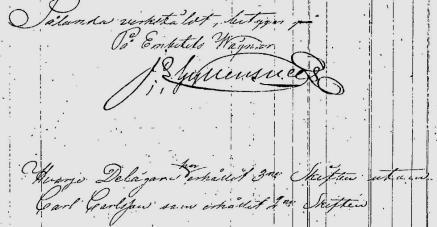 Sålunda verkstäldt, betygar
På Embetets Wägnar
Hvarje Delägare har erhållit 3ne Skiften utom
Carl Carlsson som erhållit 2ne Skiften